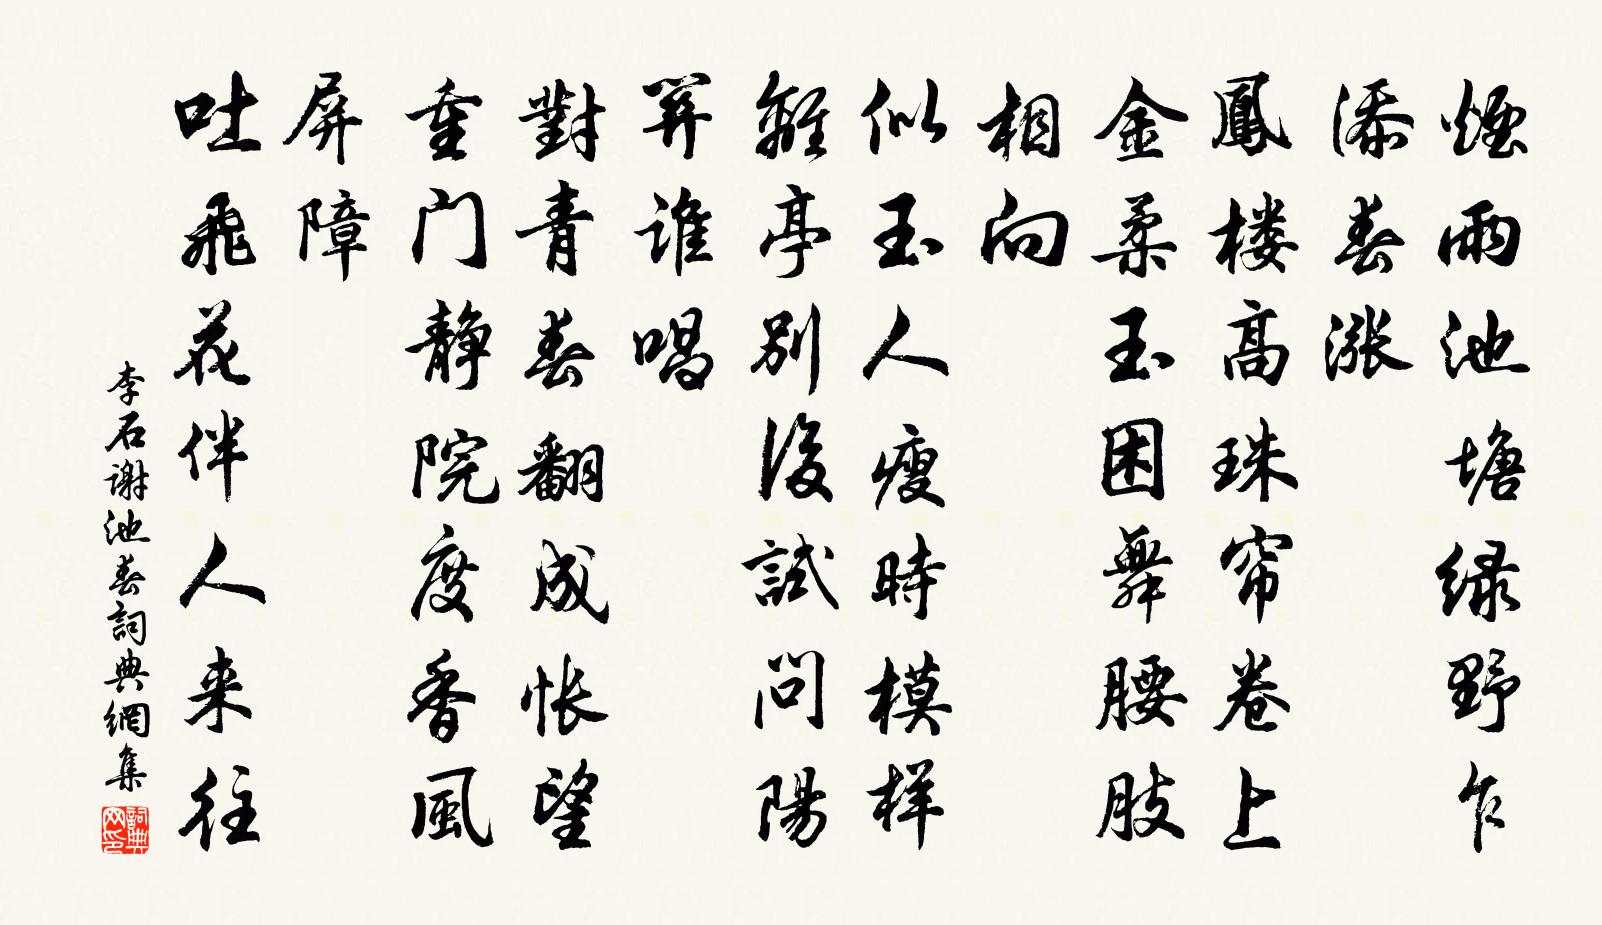 煙雨池塘绿野乍
添春漲
鳳楼高珠帘卷上
金柔玉困舞腰肢
相向
似玉人瘦時模样
離亭别後試問陽
關誰唱
對青春翻成悵望
重门静院度香風
屏障
吐飛花伴人来往
李石谢池春詞典網集
詞典网印